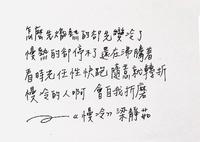 怎麼先熾熱的卻先變冷了
慢熱的卻停不了還在沸騰著
看時光任性快跑 隨意就轉折
慢冷的人啊 會自我折磨
—《慢冷》梁靜茹